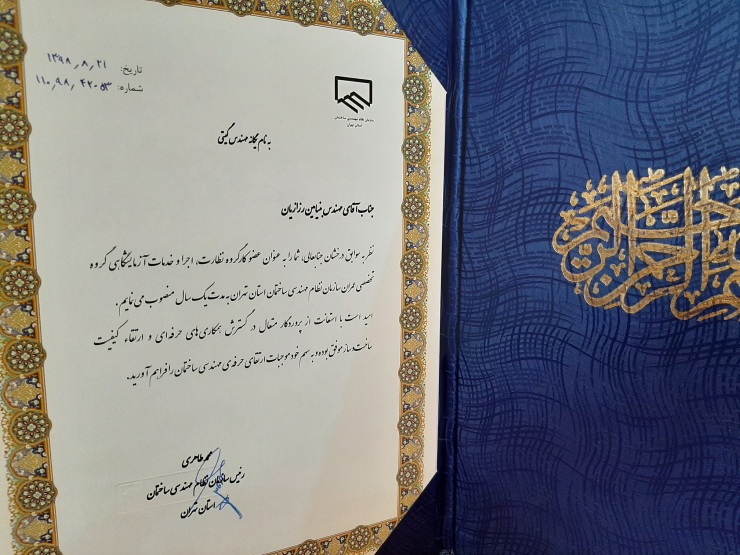 تاریخ: ۱۳۹۸٫۸٫۲۱
شماره: ۱۱۰٫۹۸٫ ۴۲۰۵۳
سازمان نظام مهندسی ساختمان
استان تهران
به نام یگانه مهندس گیتی
جناب آقای مهندس بنیامین رزازیان
نظر به سوابق درخشان جنابعالی، شما را به عنوان عضو کارگروه نظارت، اجرا و خدمات آزمایشگاهی گروه
تخصصی عمران سازمان نظام مهندسی ساختمان استان تهران به مدت یک سال منصوب می نمایم.
امید است با استعانت از پروردگار متعال در گسترش همکاری های حرفه ای و ارتقاء کیفیت
ساخت و ساز موفق بوده و به سهم خود موجبات ارتقای حرفه ی مهندسی ساختمان را فراهم آورید.
طاهری
رئیس سازمان نظام مهندسی ساختمان
استان تهران
بسم الله الرحمن الرحیم